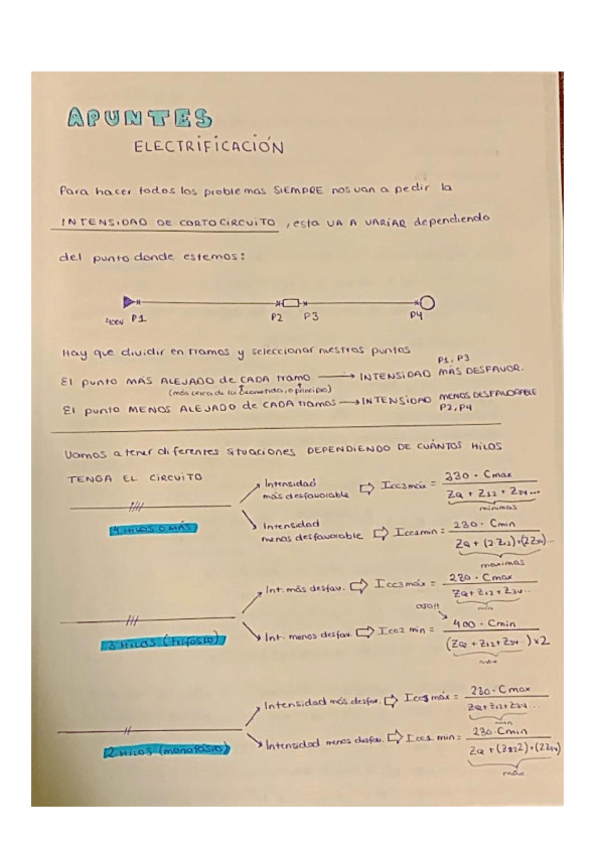 APUNTES
ELECTRIFICACIÓN
Para hacer todos los problemas SIEMPRE nos van a pedir la
INTENSIDAD DE CORTOCIRCUITO, esta VA A VARIAR dependiendo
del punto donde estemos:
400V P1 P2 P3 P4
Hay que dividir en tramos y seleccionar nuestros puntos
P1, P3
El punto MÁS ALEJADO de CADA tramo → INTENSIDAD MÁS DESFAVOR.
(más cerca de la acometida, o principio)
El punto MENOS ALEJADO de CADA tramos → INTENSIDAD MENOS DESFAVORABLE
P2, P4
Vamos a tener diferentes situaciones DEPENDIENDO DE CUÁNTOS HILOS
TENGA EL CIRCUITO
4 HILOS O MÁS
Intensidad más desfavorable ⇨ Icc3máx = 230 · Cmax / ZQ + Z12 + Z34...
mínimas
Intensidad menos desfavorable ⇨ Icc1min = 230 · Cmin / ZQ + (2·Z12)+(2Z34)...
maximas
3 HILOS (trifásico)
Int. más desfav. ⇨ Icc3máx = 230 · Cmax / ZQ + Z12 + Z34...
min
OJO!!
Int. menos desfav. ⇨ Icc2 min = 400 · Cmin / (ZQ + Z12 + Z34...) x2
máx
2 HILOS (monofásico)
Intensidad más desfav. ⇨ Icc3 máx = 230 · Cmax / ZQ + Z12 + Z34...
min
Intensidad menos desfav. ⇨ Icc1 min = 230 · Cmin / ZQ + (2Z12) + (2Z34)
máx